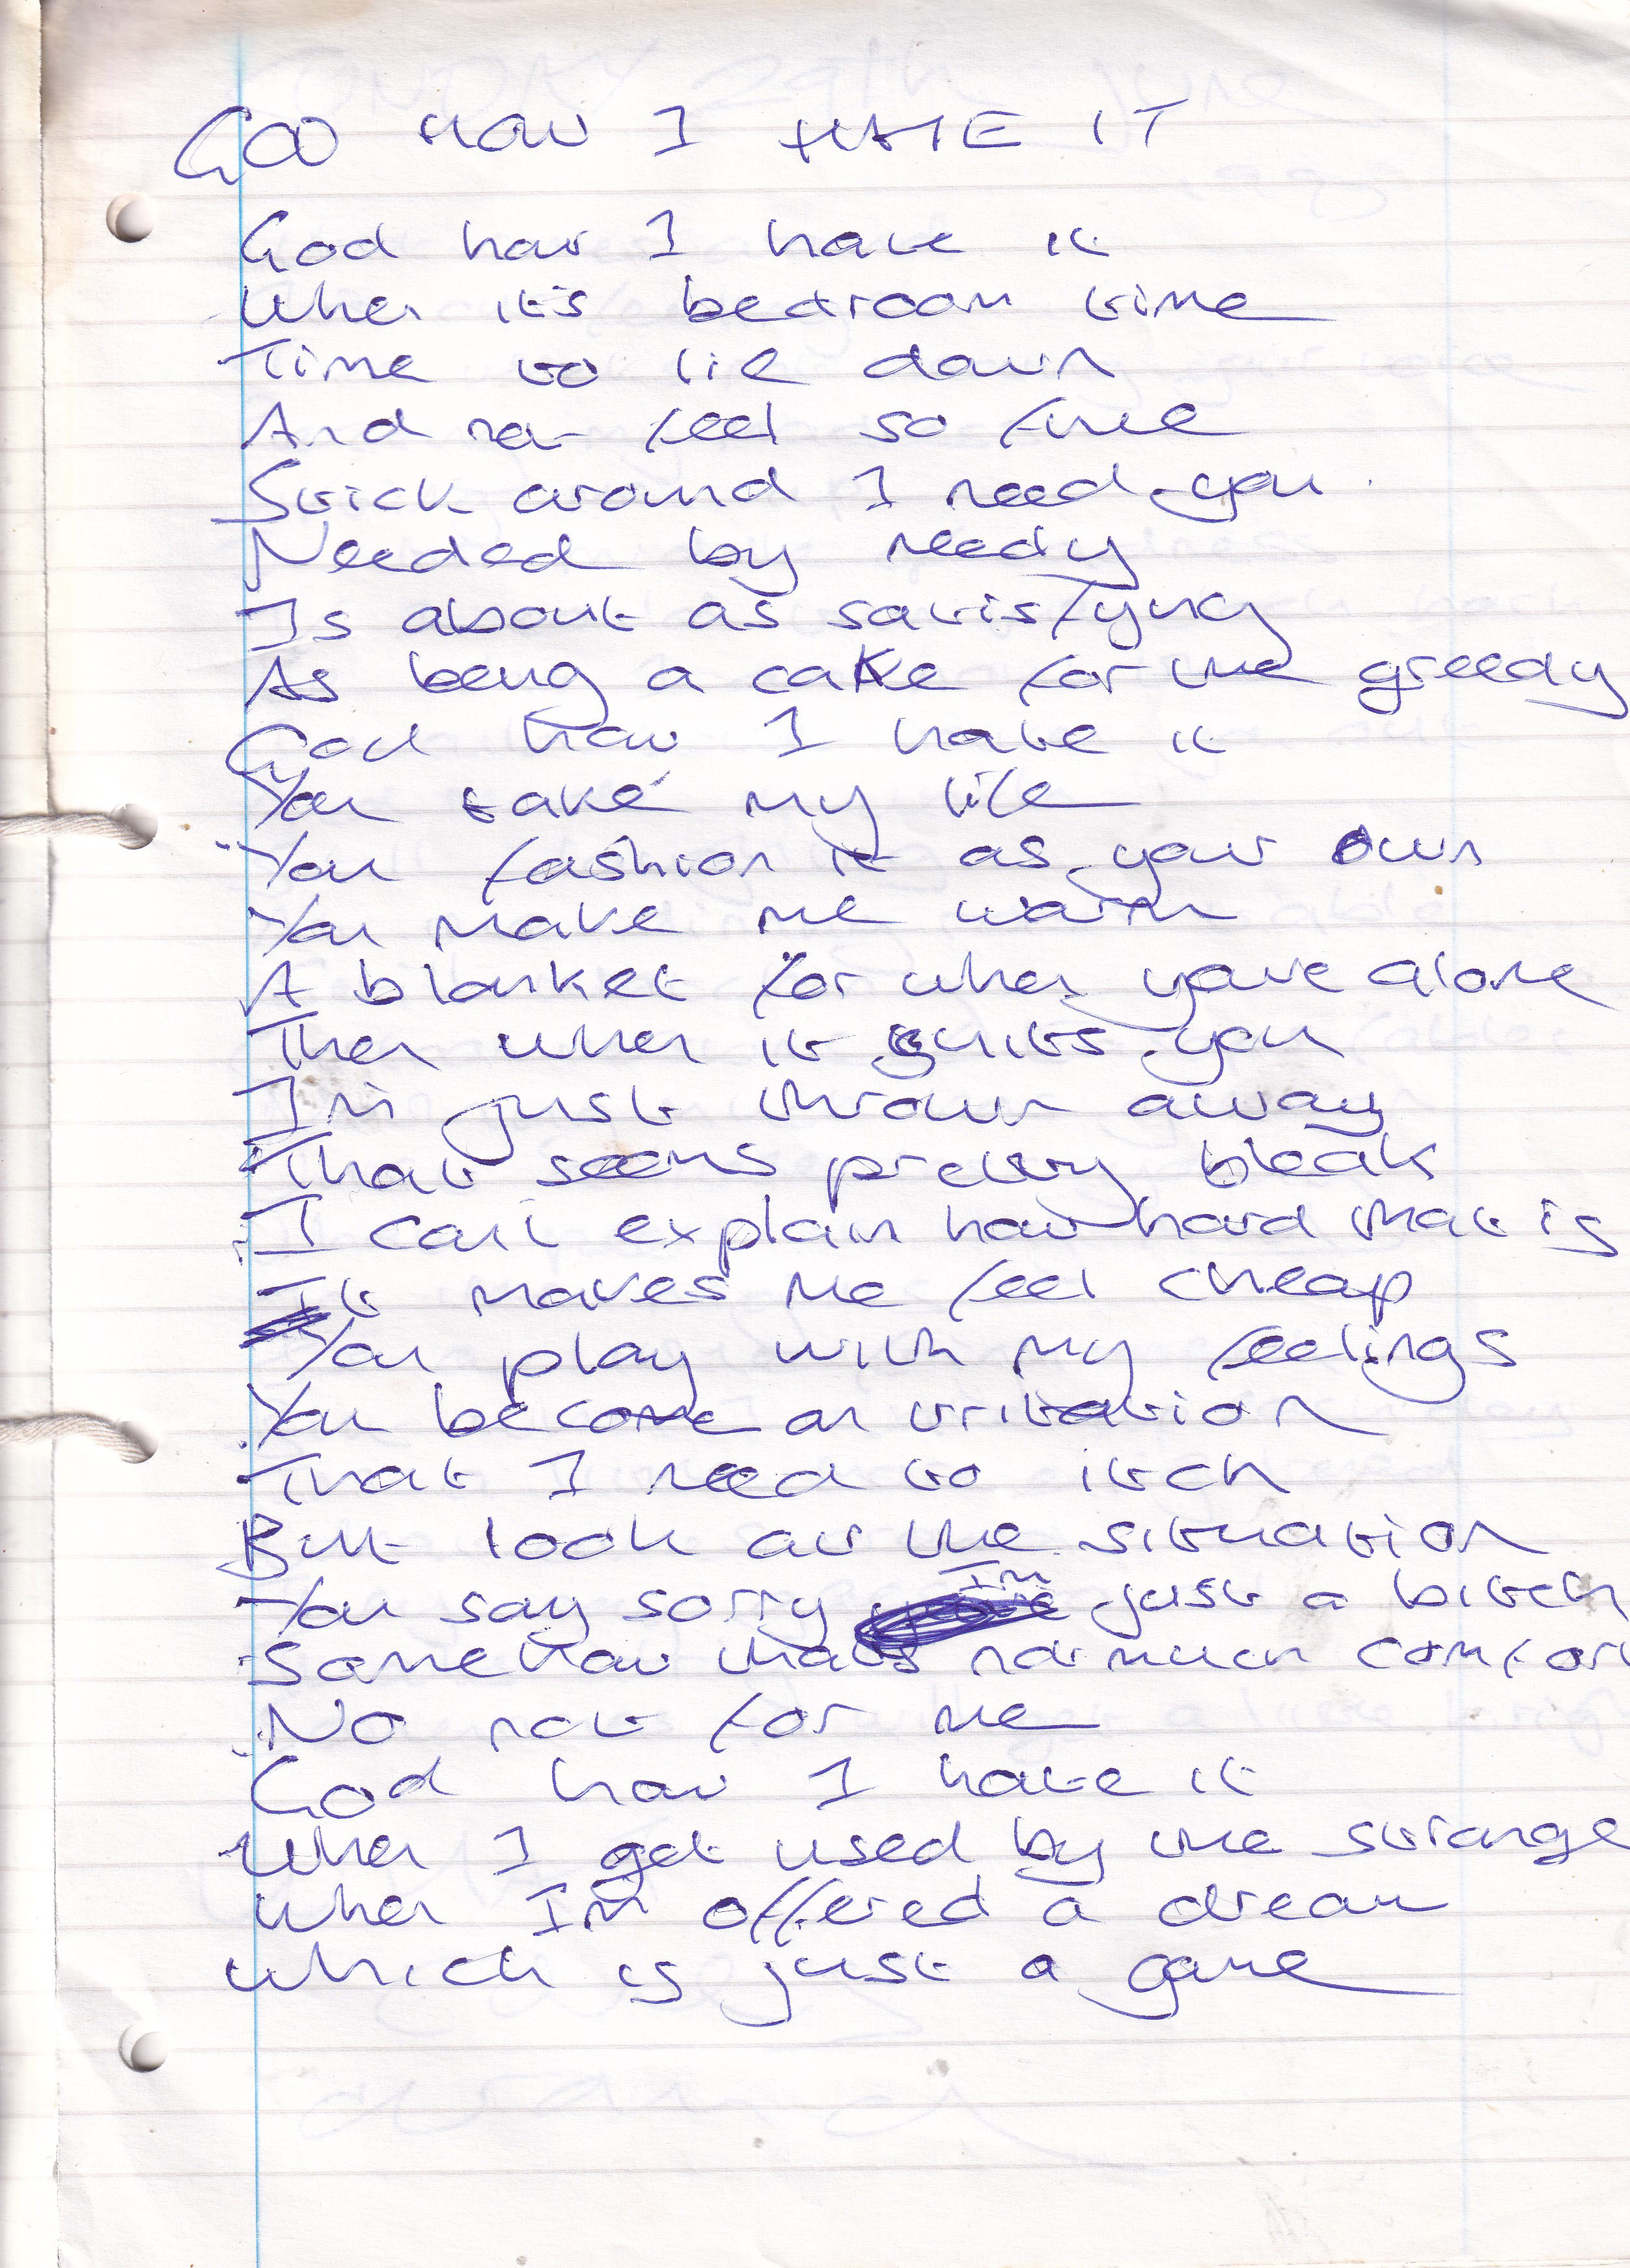 GOD HOW I HATE IT
God how I hate it
When it's bedroom time
Time to lie down
And not feel so fine
Stick around I need you
Needed by needy
Is about as satisfying
As being a cake for the greedy
God how I hate it
You take my life
You fashion it as your own
You make me warm
A blanket for when youre alone
Then when it suits you
Im just thrown away
That seems pretty bleak
I cant explain how hard that is
It makes me feel cheap
You play with my feelings
You become an irritation
That I need to itch
But look at the situation
You say sorry Im just a bitch
Somehow thats not much comfort
No not for me
God how I hate it
When I get used by the strange
When Im offered a dream
Which is just a game